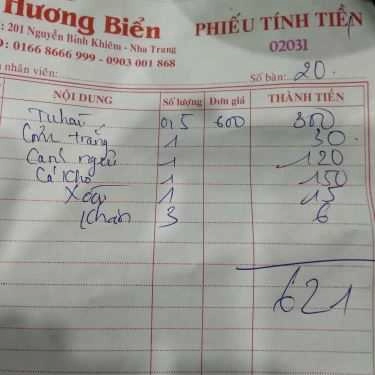 Hương Biển
PHIẾU TÍNH TIỀN
: 201 Nguyễn Bỉnh Khiêm - Nha Trang
02031
: 0166 8666 999 - 0903 001 868
nhân viên: Số bàn: 20
NỘI DUNG Số lượng Đơn giá THÀNH TIỀN
Tu hài 0,5 600 300
Cơm trắng 1 30
Canh ngêu 1 120
Cá kho 1 150
Xoài 1 15
Khăn 3 6
621